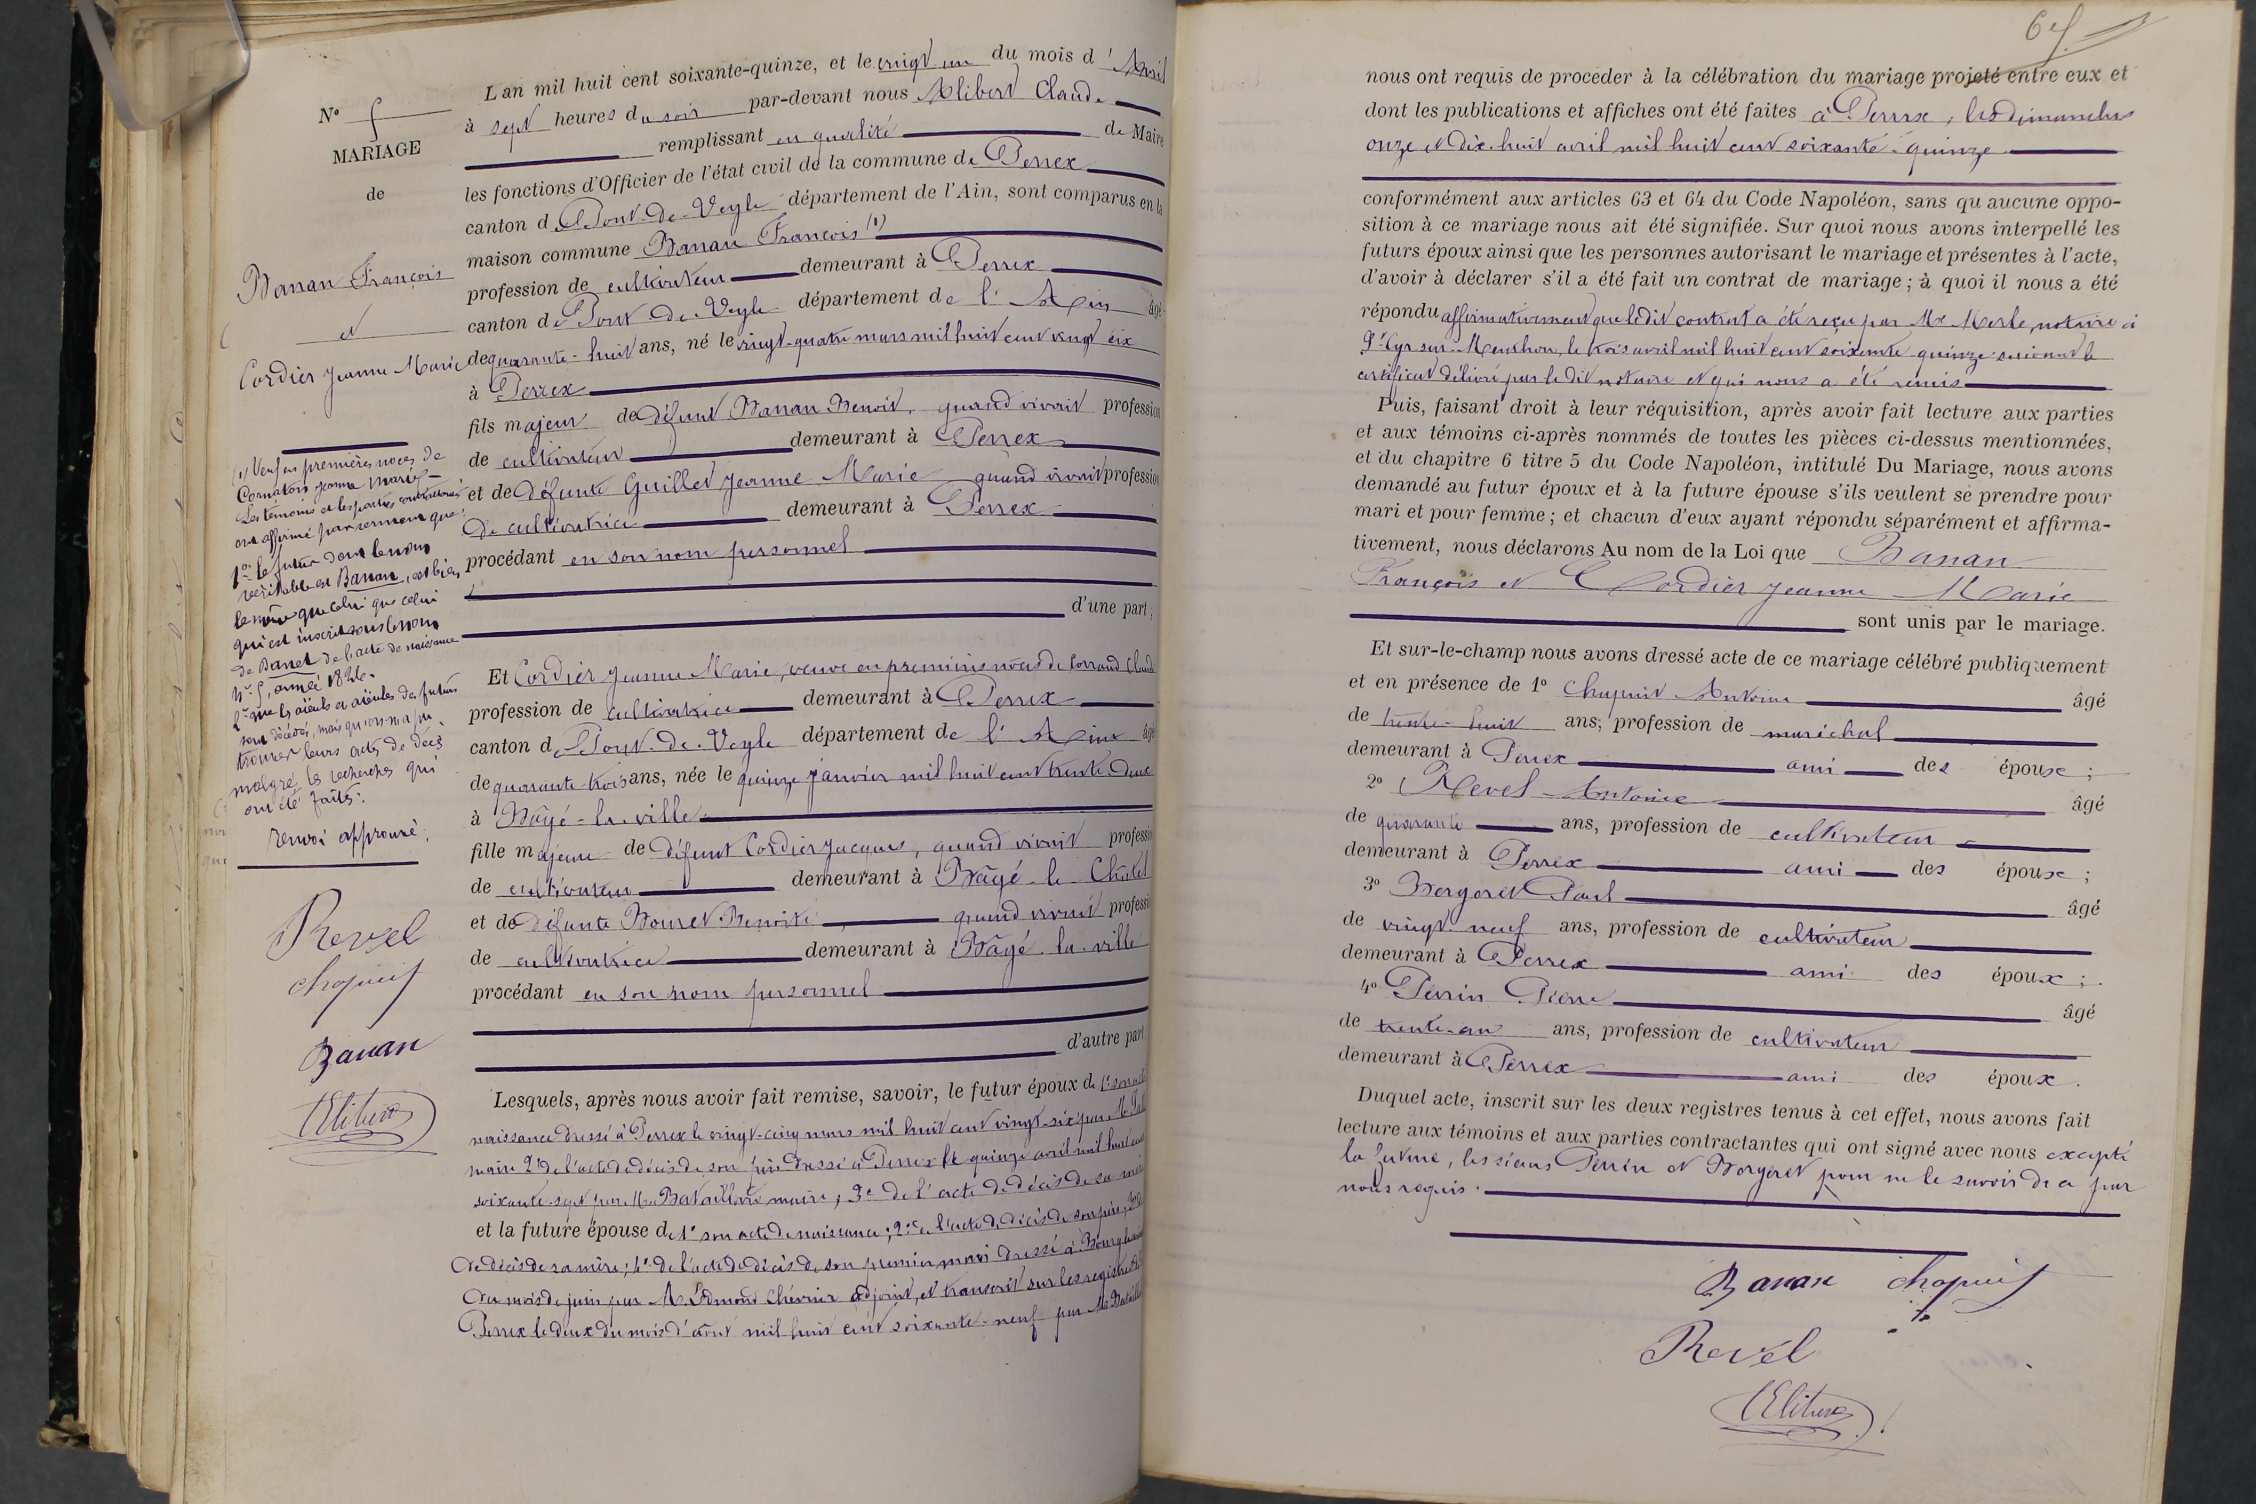 Nº 5
MARIAGE
de
Banan François
et
Cordier Jeanne Marie
(1) Veuf en premières noces de
Cornaton Jeanne Marie
Les témoins et les parties contractantes
ont affirmé par serment que:
1º le futur dont le nom
véritable est Banan, est bien
le même que celui que celui
qui est inscrit sous le nom
de Banet de l'acte de naissance
Nº 5, année 1826.
2º que les aïeuls et aïeules des futurs
sont décédés, mais qu'on n'a pu
trouver leurs actes de décès
malgré les recherches qui
ont été faites.
renvoi approuvé.
Revel
Chapuis
Banan
Alibert
L'an mil huit cent soixante-quinze, et le vingt un du mois d'Avril
à sept heures du soir par-devant nous Alibert Claude
remplissant en qualité de Maire
les fonctions d'Officier de l'état civil de la commune de Perrex
canton de Pont-de-Veyle département de l'Ain, sont comparus en la
maison commune Banan François (1)
profession de cultivateur demeurant à Perrex
canton de Pont-de-Veyle département de l'Ain âgé
de quarante-huit ans, né le vingt-quatre mars mil huit cent vingt six
à Perrex
fils majeur de défunt Banan Benoit, quand vivait profession
de cultivateur demeurant à Perrex
et de défunte Guillet Jeanne Marie quand vivait profession
de cultivatrice demeurant à Perrex
procédant en son nom personnel
d'une part;
Et Cordier Jeanne Marie, veuve en premières noces de Corrand Claude
profession de cultivatrice demeurant à Perrex
canton de Pont-de-Veyle département de l'Ain âgé
de quarante-trois ans, née le quinze janvier mil huit cent trente-deux
à Bâgé-la-ville
fille majeure de défunt Cordier Jacques, quand vivait profession
de cultivateur demeurant à Bâgé-le-Châtel
et de défunte Bouret Benoite quand vivait profession
de cultivatrice demeurant à Bâgé-la-ville
procédant en son nom personnel
d'autre part
Lesquels, après nous avoir fait remise, savoir, le futur époux de 1º son acte
naissance dressé à Perrex le vingt-cinq mars mil huit cent vingt-six par M.
maire 2º de l'acte de décès de son père dressé à Perrex le quinze avril mil huit cent
soixante-sept par M. Bataillard maire; 3º de l'acte de décès de sa mère
et la future épouse de 1º son acte de naissance; 2º de l'acte de décès de son père; 3º
de décès de sa mère; 4º de l'acte de décès de son premier mari dressé à Bourg le
du mois de juin par M. Edmond Chevrier adjoint, et transcrit sur les registres de
Perrex le deux du mois d'août mil huit cent soixante-neuf par M. Bataillard
65
nous ont requis de procéder à la célébration du mariage projeté entre eux et
dont les publications et affiches ont été faites à Perrex, les dimanches
onze et dix-huit avril mil huit cent soixante-quinze
conformément aux articles 63 et 64 du Code Napoléon, sans qu'aucune oppo-
sition à ce mariage nous ait été signifiée. Sur quoi nous avons interpellé les
futurs époux ainsi que les personnes autorisant le mariage et présentes à l'acte,
d'avoir à déclarer s'il a été fait un contrat de mariage; à quoi il nous a été
répondu affirmativement que le dit contrat a été reçu par Me Merle, notaire à
St Cyr-sur-Menthon, le trois avril mil huit cent soixante quinze suivant le
certificat délivré par le dit notaire et qui nous a été remis
Puis, faisant droit à leur réquisition, après avoir fait lecture aux parties
et aux témoins ci-après nommés de toutes les pièces ci-dessus mentionnées,
et du chapitre 6 titre 5 du Code Napoléon, intitulé Du Mariage, nous avons
demandé au futur époux et à la future épouse s'ils veulent se prendre pour
mari et pour femme; et chacun d'eux ayant répondu séparément et affirma-
tivement, nous déclarons Au nom de la Loi que Banan
François et Cordier Jeanne Marie
sont unis par le mariage.
Et sur-le-champ nous avons dressé acte de ce mariage célébré publiquement
et en présence de 1º Chapuis Antoine âgé
de trente-huit ans, profession de maréchal
demeurant à Perrex ami des époux;
2º Revel Antoine âgé
de quarante ans, profession de cultivateur
demeurant à Perrex ami des époux;
3º Borgeret Paul âgé
de vingt-neuf ans, profession de cultivateur
demeurant à Perrex ami des époux;
4º Perrin Pierre âgé
de trente-un ans, profession de cultivateur
demeurant à Perrex ami des époux.
Duquel acte, inscrit sur les deux registres tenus à cet effet, nous avons fait
lecture aux témoins et aux parties contractantes qui ont signé avec nous excepté
la future, les sieurs Perrin et Borgeret pour ne le savoir de ce par
nous requis.
Banan Chapuis
Revel
Alibert